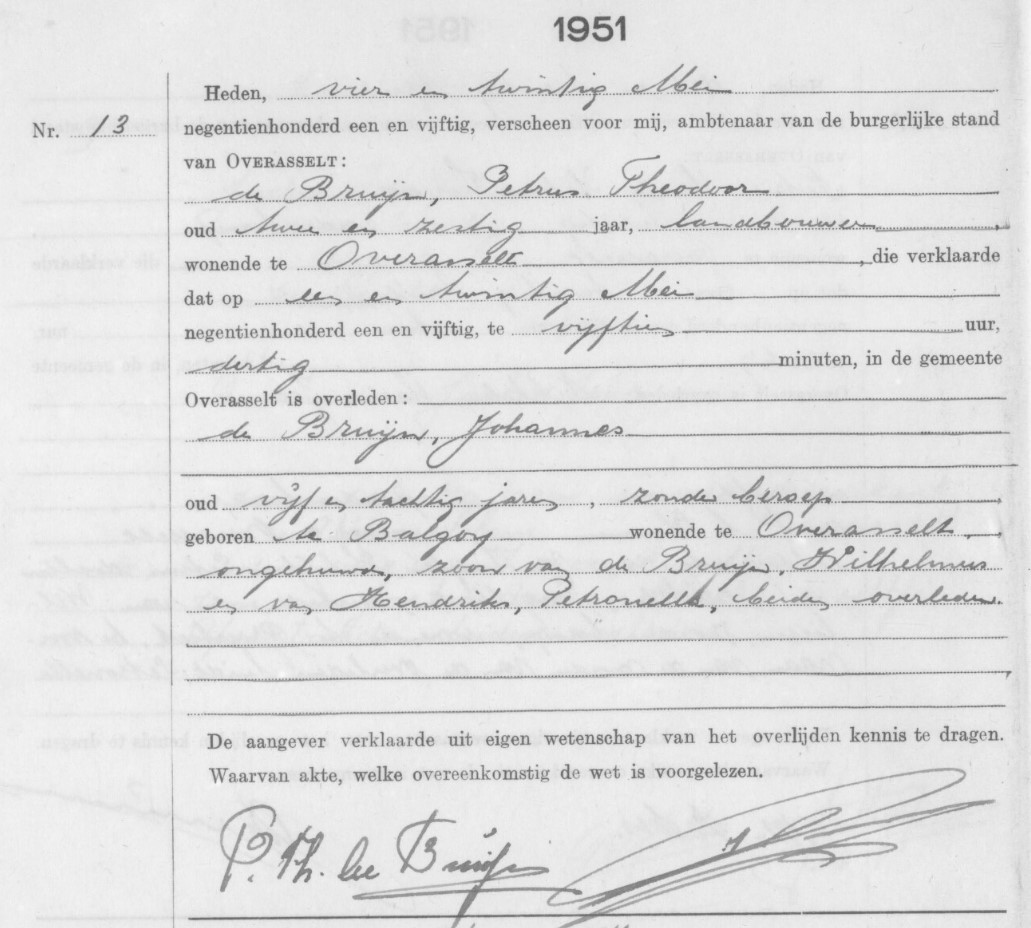 1951
Heden, vier en twintig Mei
Nr. 13 negentienhonderd een en vijftig, verscheen voor mij, ambtenaar van de burgerlijke stand
van OVERASSELT:
de Bruijn, Petrus Theodoor
oud twee en zestig jaar, landbouwer,
wonende te Overasselt, die verklaarde
dat op een en twintig Mei
negentienhonderd een en vijftig, te vijftien uur,
dertig minuten, in de gemeente
Overasselt is overleden:
de Bruijn, Johannes
oud vijf en tachtig jaren, zonder beroep,
geboren te Balgoy wonende te Overasselt,
ongehuwd, zoon van de Bruijn Wilhelmus
en van Hendriks, Petronella, beiden overleden.
De aangever verklaarde uit eigen wetenschap van het overlijden kennis te dragen.
Waarvan akte, welke overeenkomstig de wet is voorgelezen.
P. Th. de Bruijn